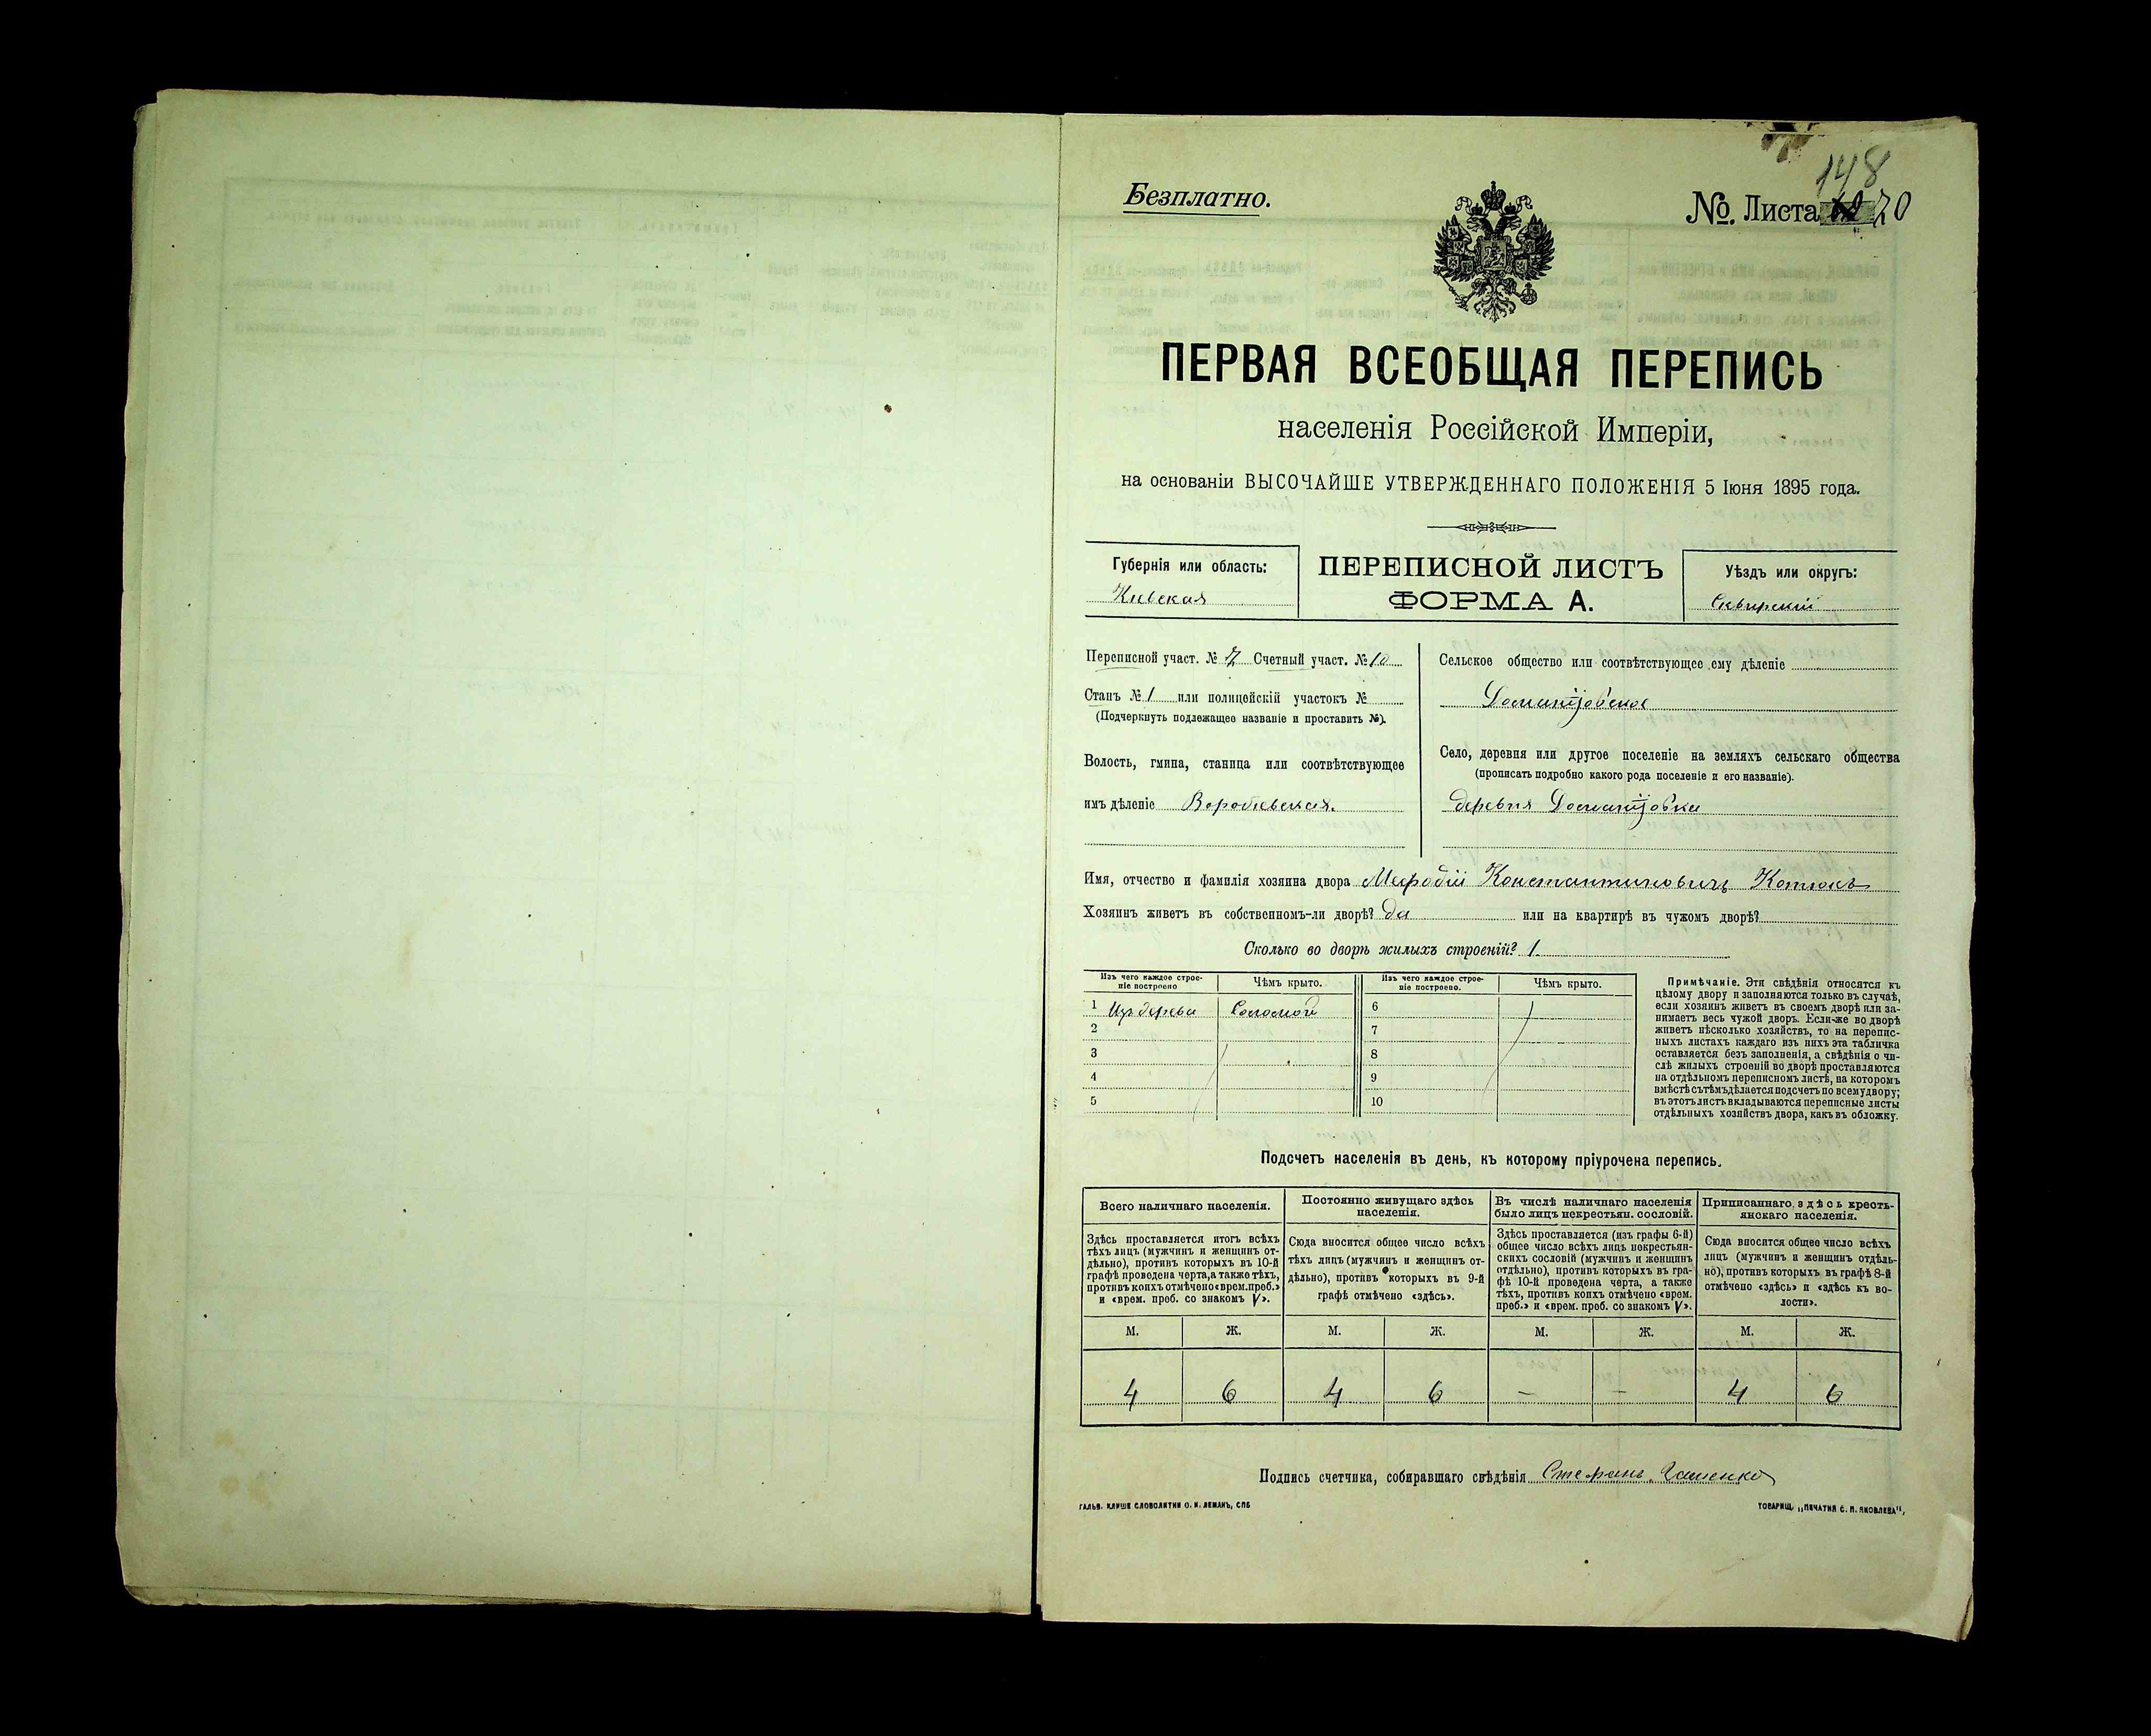 148
Безплатно.
№. Листа 20
ПЕРВАЯ ВСЕОБЩАЯ ПЕРЕПИСЬ
населенія Россійской Имперіи,
на основаніи ВЫСОЧАЙШЕ УТВЕРЖДЕННАГО ПОЛОЖЕНІЯ 5 Іюня 1895 года.
Губернія или область:
Кіевская
ПЕРЕПИСНОЙ ЛИСТЪ
ФОРМА А.
Уѣздъ или округъ:
Сквирскій
Переписной участ. № 7 Счетный участ. № 10
Станъ № 1 или полицейскій участокъ №
(Подчеркнуть подлежащее названіе и проставить №).
Волость, гмина, станица или соотвѣтствующее
имъ дѣленіе
Сельское общество или соотвѣтствующее ему дѣленіе
Село, деревня или другое поселеніе на земляхъ сельскаго общества
(прописать подробно какого рода поселеніе и его названіе).
деревня
Имя, отчество и фамилія хозяина двора Мефодій Константиновичъ Котюкъ
Хозяинъ живетъ въ собственномъ-ли дворѣ? да или на квартирѣ въ чужомъ дворѣ?
Сколько во дворѣ жилыхъ строеній? 1.
Изъ чего каждое строе-
ніе построено
Чѣмъ крыто.
Изъ чего каждое строе-
ніе построено.
Чѣмъ крыто.
1 Изъ дерева Соломой
2
3
4
5
6
7
8
9
10
Примѣчаніе. Эти свѣдѣнія относятся къ
цѣлому двору и заполняются только въ случаѣ,
если хозяинъ живетъ въ своемъ дворѣ или за-
нимаетъ весь чужой дворъ. Если-же во дворѣ
живетъ нѣсколько хозяйствъ, то на перепис-
ныхъ листахъ каждаго изъ нихъ эта табличка
оставляется безъ заполненія, а свѣдѣнія о чи-
слѣ жилыхъ строеній во дворѣ проставляются
на отдѣльномъ переписномъ листѣ, на которомъ
вмѣстѣ съ тѣмъ дѣлается подсчетъ по всему двору;
въ этотъ листъ вкладываются переписные листы
отдѣльныхъ хозяйствъ двора, какъ въ обложку.
Подсчетъ населенія въ день, къ которому пріурочена перепись.
Всего наличнаго населенія.
Постоянно живущаго здѣсь
населенія.
Въ числѣ наличнаго населенія
было лицъ некрестьян. сословій.
Приписаннаго здѣсь кресть-
янскаго населенія.
Здѣсь проставляется итогъ всѣхъ
тѣхъ лицъ (мужчинъ и женщинъ от-
дѣльно), противъ которыхъ въ 10-й
графѣ проведена черта, а также тѣхъ,
противъ коихъ отмѣчено «врем. преб.»
и «врем. преб. со знакомъ V».
Сюда вносится общее число всѣхъ
тѣхъ лицъ (мужчинъ и женщинъ от-
дѣльно), противъ которыхъ въ 9-й
графѣ отмѣчено «здѣсь».
Здѣсь проставляется (изъ графы 6-й)
общее число всѣхъ лицъ некрестьян-
скихъ сословій (мужчинъ и женщинъ
отдѣльно), противъ которыхъ въ гра-
фѣ 10-й проведена черта, а также
тѣхъ, противъ коихъ отмѣчено «врем.
преб.» и «врем. преб. со знакомъ V».
Сюда вносится общее число всѣхъ
лицъ (мужчинъ и женщинъ отдѣль-
но), противъ которыхъ въ графѣ 8-й
отмѣчено «здѣсь» и «здѣсь къ во-
лости».
М. Ж. М. Ж. М. Ж. М. Ж.
4 6 4 6 — — 4 6
Подпись счетчика, собиравшаго свѣдѣнія Степанъ
ГАЛЬВ. КЛИШЕ СЛОВОЛИТНИ О. И. ЛЕМАНЪ, СПБ
ТОВАРИЩ. „ПЕЧАТНЯ С. П. ЯКОВЛЕВА",